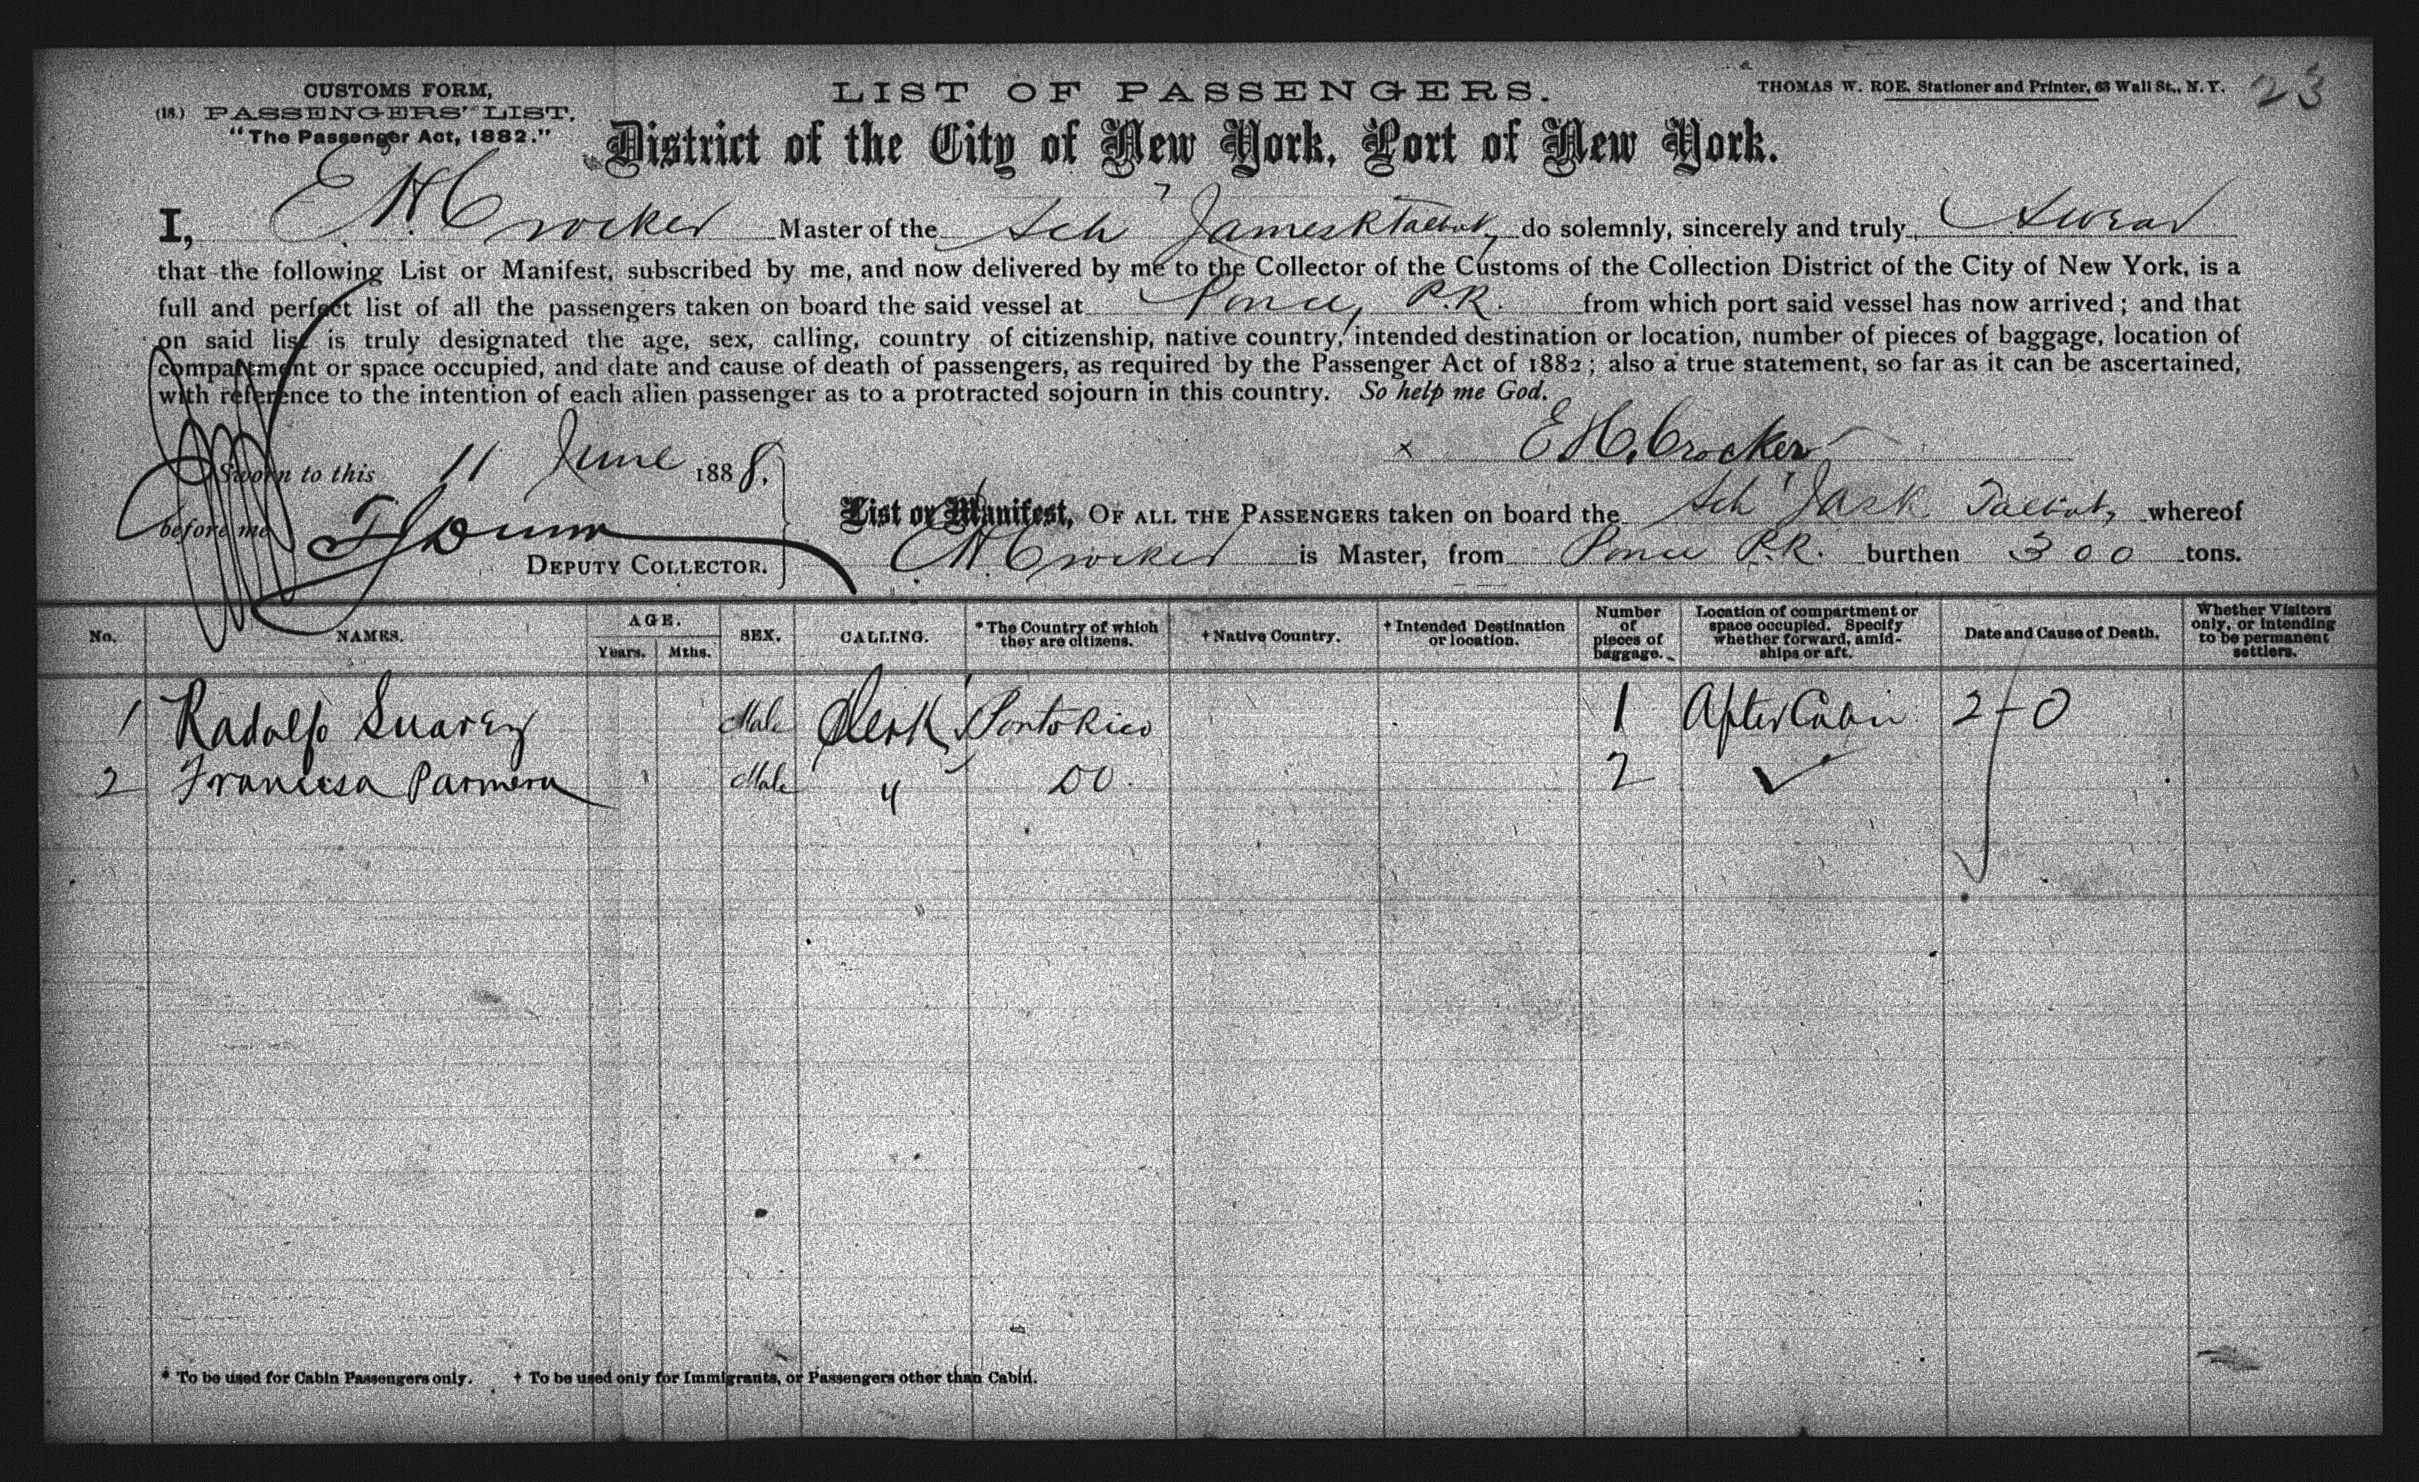 CUSTOMS FORM,
(18.) PASSENGERS' LIST,
"The Passenger Act, 1882."
LIST OF PASSENGERS.
THOMAS W. ROE, Stationer and Printer, 63 Wall St., N. Y.
23
District of the City of New York, Port of New York.
I, E H Crocker Master of the Sch Jamesk Talbot, do solemnly, sincerely and truly, Swear
that the following List or Manifest, subscribed by me, and now delivered by me to the Collector of the Customs of the Collection District of the City of New York, is a
full and perfect list of all the passengers taken on board the said vessel at Ponce, P.R. from which port said vessel has now arrived; and that
on said list is truly designated the age, sex, calling, country of citizenship, native country, intended destination or location, number of pieces of baggage, location of
compartment or space occupied, and date and cause of death of passengers, as required by the Passenger Act of 1882; also a true statement, so far as it can be ascertained,
with reference to the intention of each alien passenger as to a protracted sojourn in this country. So help me God.
x E H. Crocker
Sworn to this 11 June 1888.
before me
DEPUTY COLLECTOR.
List or Manifest, OF ALL THE PASSENGERS taken on board the Sch Jas K Talbot, whereof
E H. Crocker is Master, from Ponce P.R. burthen 300 tons.
No. NAMES. AGE. Years. Mths. SEX. CALLING. *The Country of which they are citizens. †Native Country. †Intended Destination or location. Number of pieces of baggage. Location of compartment or space occupied. Specify whether forward, amidships or aft. Date and Cause of Death. Whether Visitors only, or intending to be permanent settlers.
1 Radolfo Suarez Male Clerk Porto Rico 1 After Cabin 2+0
2 Francisa Parmera Male " DO. 2 ✓
* To be used for Cabin Passengers only. † To be used only for Immigrants, or Passengers other than Cabin.